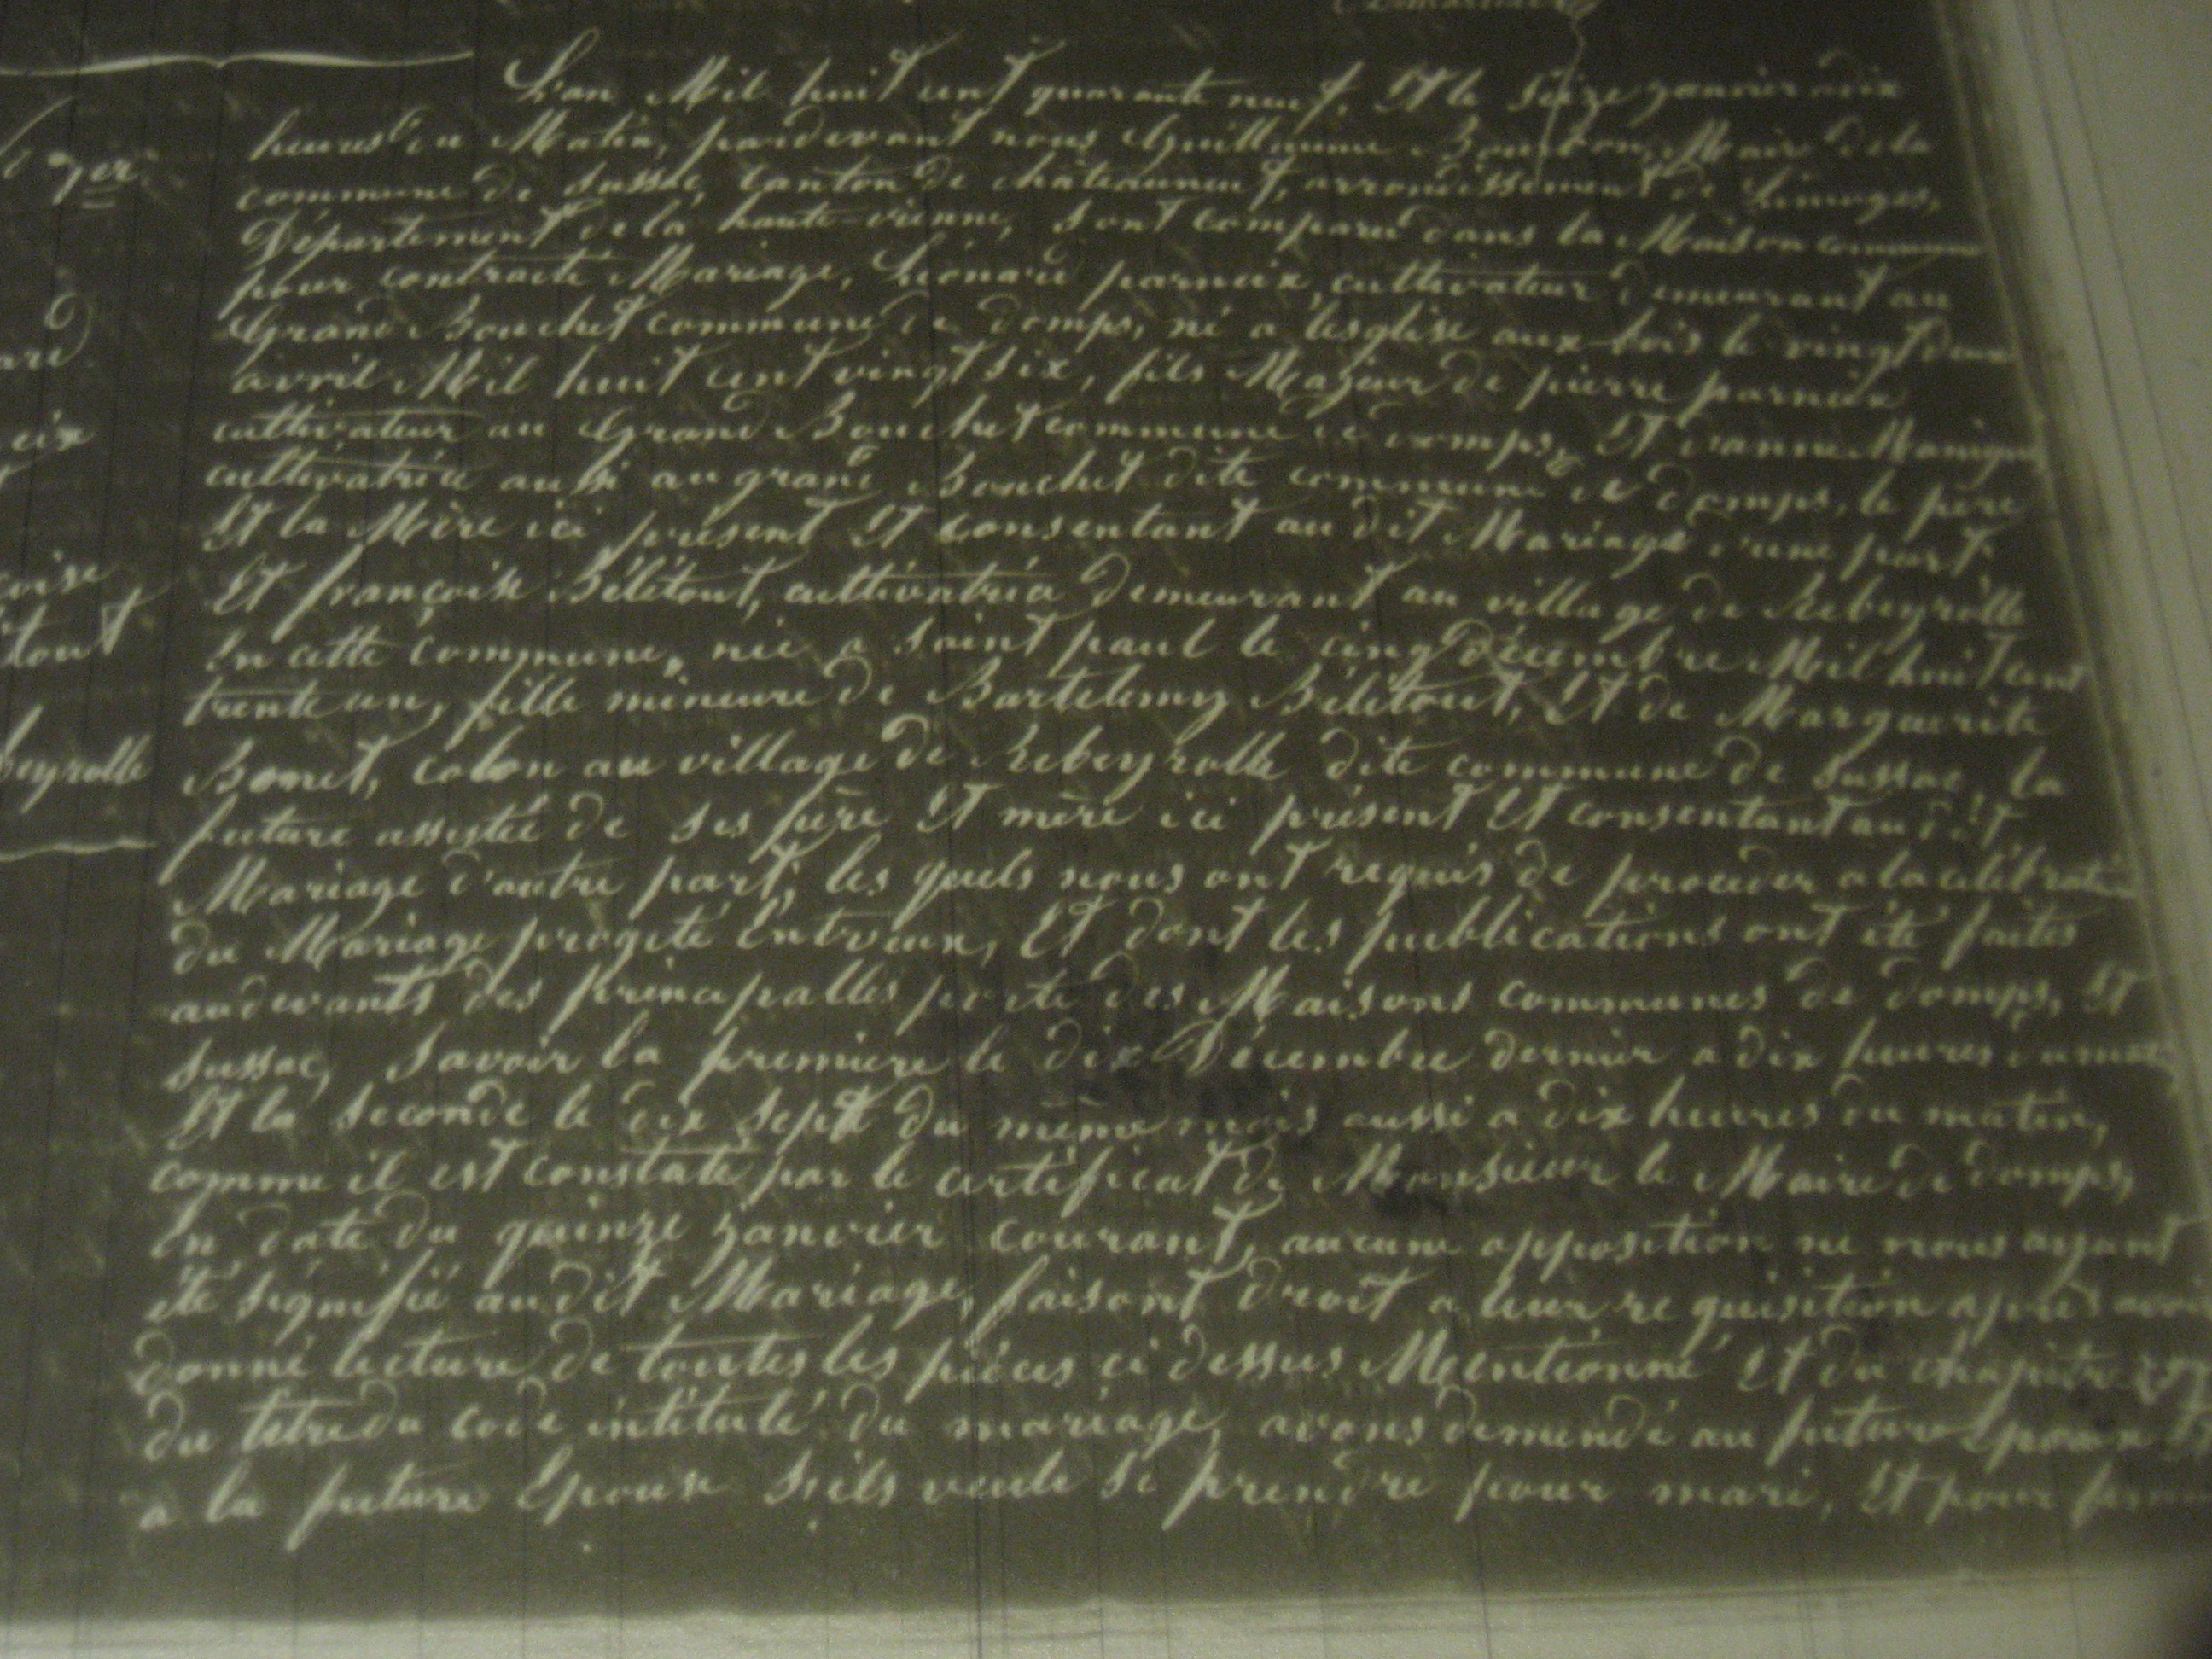 L'an Mil huit cent quarante neuf, Et le Seize janvier a dix
heures du Matin, pardevant nous Guillaume Bourbon, Maire de la
1er
commune de Sussac, Canton de châteauneuf, arrondissement de Limoges,
Département de la haute vienne, Sont Comparu dans la Maison commune
pour contracté Mariage, Léonard parneix, cultivateur demeurant au
Grand Bouchet commune de domps, né a lesglise aux bois le vingt deux
ard
avril Mil huit cent vingt six, fils Majeur de pierre parneix
eix
cultivateur au Grand Bouchet commune de domps, Et d'anne
cultivatrice aussi au grand Bouchet dite commune de domps, le père
Et la Mère ici présent Et consentant au dit Mariage d'une part
Et françoise Bélétout, cultivatrice demeurant au village de Rebeyrolle
coise
tout
En cette commune, née a Saint paul le cinq décembre Mil huit cent
trente un, fille mineure de Bartelemy Bélétout, Et de Marguerite
beyrolle
Bonet, colon au village de Rebeyrolle dite commune de Sussac, la
future assistée de ses père Et mère ici présent Et consentant au dit
Mariage d'autre part, les quels nous ont requis de procéder a la célébration
du Mariage progité Entreeux, Et dont les publications ont été faites
au devants des principalles porte des Maisons communes de domps, Et
Sussac, Savoir la premiere le dix Décembre dernier a dix heures du matin
Et la Seconde le dix Sept du même mois aussi a dix heures du matin,
comme il est constaté par le certificat de Monsieur le Maire de domps,
En date du quinze janvier courant, aucune opposition ne nous ayant
été signifié audit Mariage, faisont droit a leur requisition après avoir
donné lecture de toutes les pièces ci dessus Mentionné Et du chapitre
du titre du code intitulé du mariage, avons demandé au futur Epoux Et
a la future Epouse S'ils veule se prendre pour mari, Et pour femme